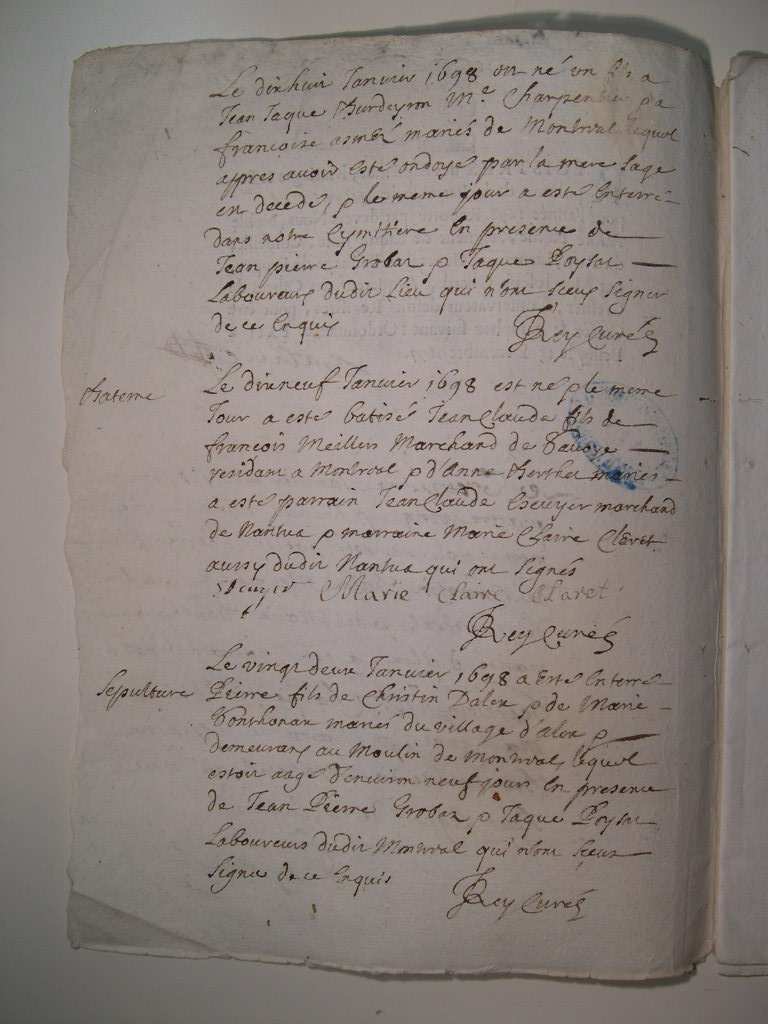 Le dixhuit Janvier 1698 est né un fils a
Jean Jaque Mr Charpentier & a
francoise mariés de Montreal lequel
appres avoir esté ondoyé par la mere sage
en decede, & le meme jour a esté Enterré
dans notre Cymitiere En presence de
Jean pierre Grobaz & Jaque Poysat
Laboureurs dudit Lieu qui n'ont sceu signer
de ce Enquis
Rey Curé
Bateme
Le dixneuf Janvier 1698 est né & le meme
Jour a esté batisé Jean Claude fils de
françois Marchand de Savoye
residant a Montreal & d'Anne Berthet mariés
a esté parrain Jean Claude Escuyer marchand
de Nantua & marraine Marie Claire Claret
aussy dudit Nantua qui ont signés
Marie Claire Claret
Rey Curé
Sepulture
Le vingt deux Janvier 1698 a Esté Enterré
Pierre fils de Christin Dalex & de Marie
mariés du village d'alex &
demeurans au Moulin de Montreal lequel
estoit aagé d'environ neuf jours En presence
de Jean Pierre Grobaz & Jaque Poysat
Laboureurs dudit Montreal qui n'ont sceu
signé de ce Enquis
Rey Curé